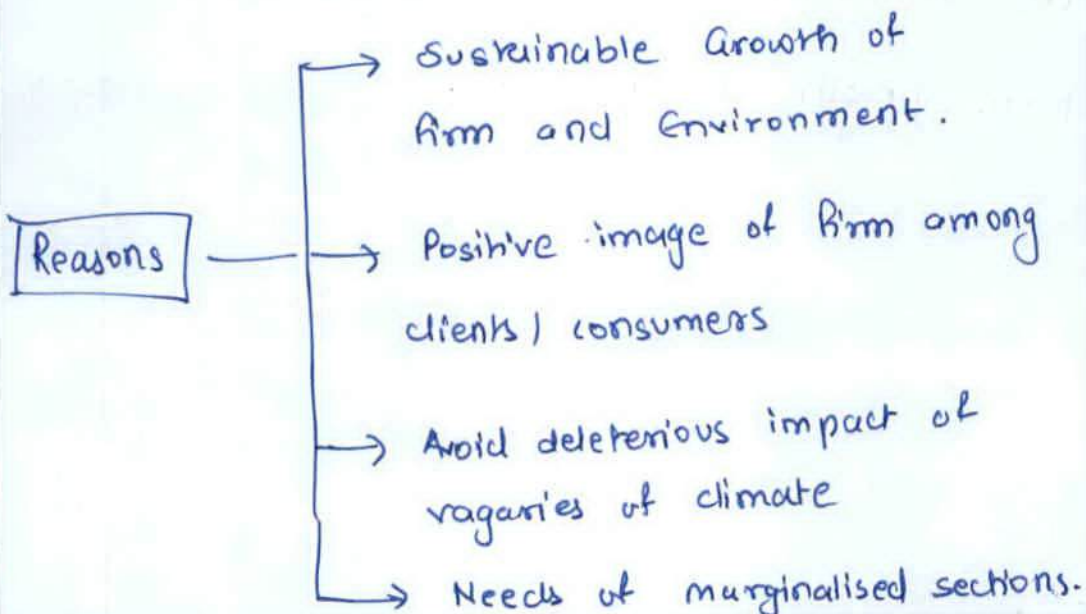 Sustainable Growth of
firm and Environment.
Reasons
Positive image of firm among
clients / consumers
Avoid deleterious impact of
vagaries of climate
Needs of marginalised sections.